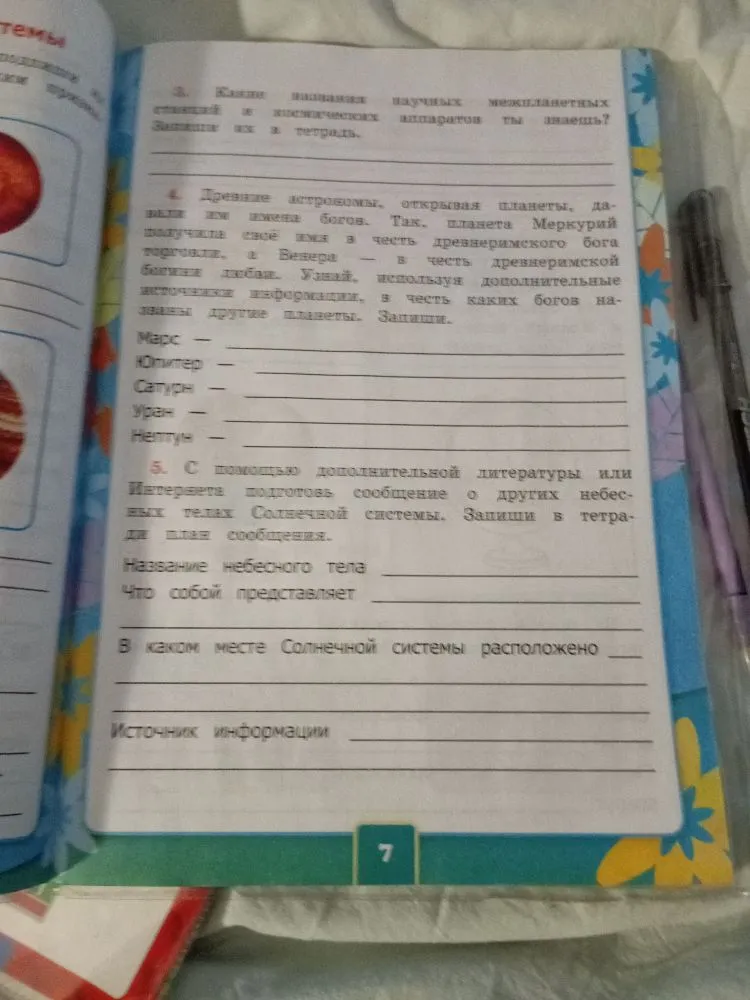 темы
подпиши их
3. Какие названия научных межпланетных
станций и космических аппаратов ты знаешь?
Запиши их в тетрадь.
4. Древние астрономы, открывая планеты, да-
вали им имена богов. Так, планета Меркурий
получила своё имя в честь древнеримского бога
торговли, а Венера — в честь древнеримской
богини любви. Узнай, используя дополнительные
источники информации, в честь каких богов на-
званы другие планеты. Запиши.
Марс —
Юпитер —
Сатурн —
Уран —
Нептун —
5. С помощью дополнительной литературы или
Интернета подготовь сообщение о других небес-
ных телах Солнечной системы. Запиши в тетра-
ди план сообщения.
Название небесного тела
Что собой представляет
В каком месте Солнечной системы расположено
Источник информации
7